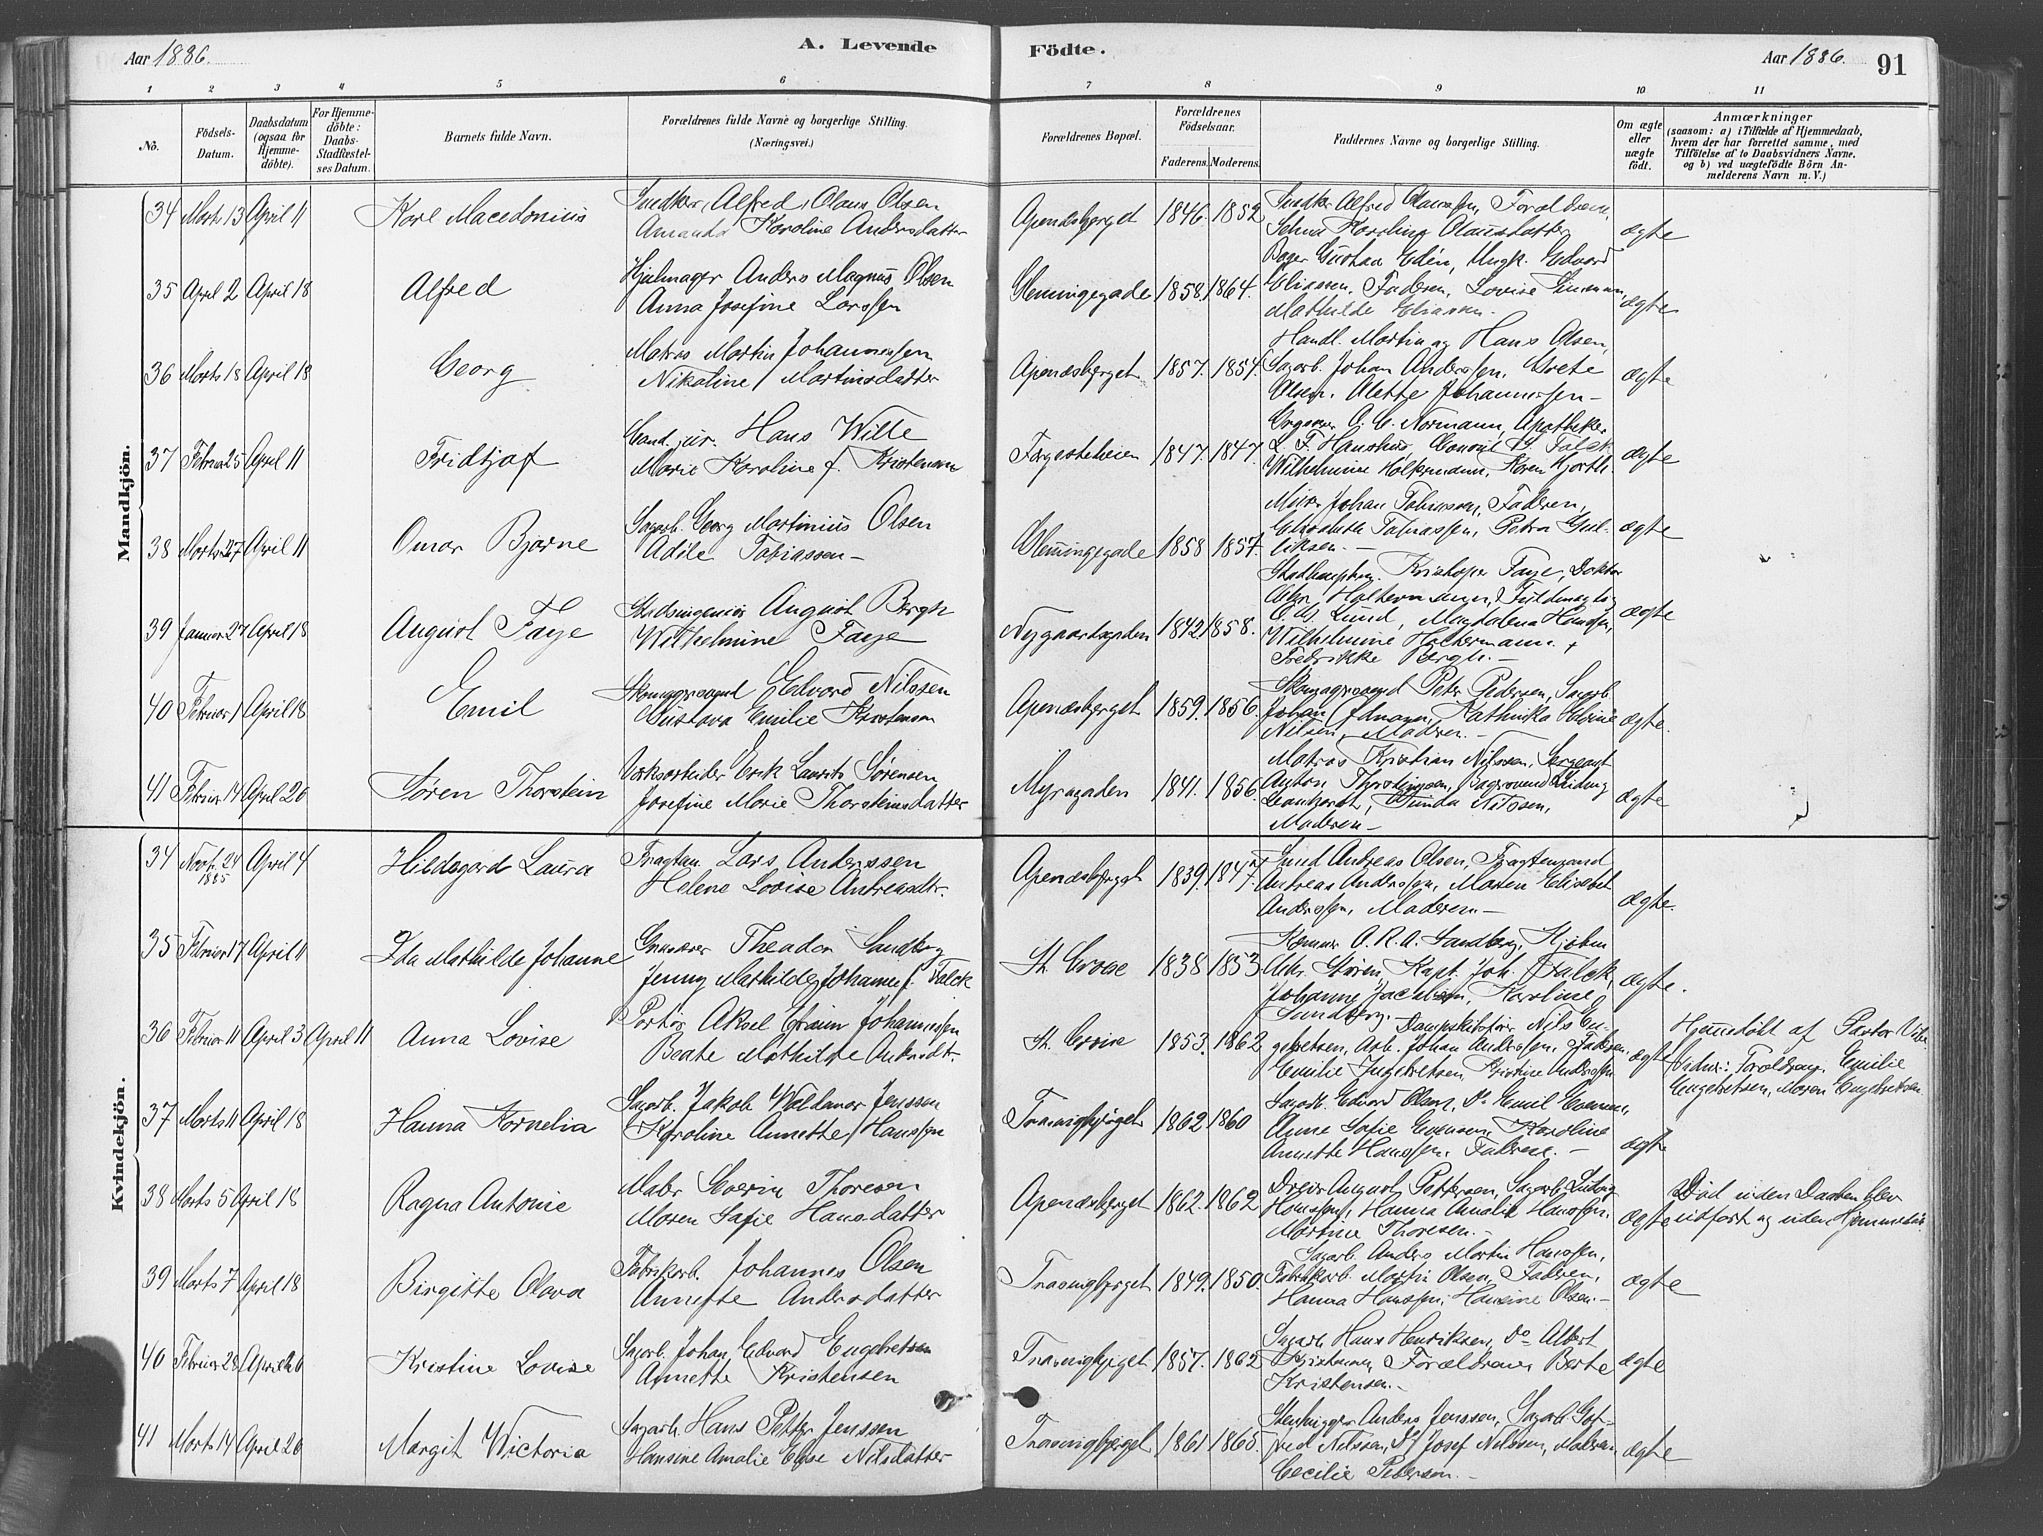 Aar 1886.
A. Levende
Födte.
Aar 1886.
91
1 2 3 4 5 6 7 8 9 10 11
No.
Födsels-
Datum.
Daabsdatum
(ogsaa for
Hjemme-
döbte).
For Hjemme-
döbte:
Daabs-
Stadfæstel-
ses Datum.
Barnets fulde Navn.
Forældrenes fulde Navne og borgerlige Stilling.
(Næringsvei.)
Forældrenes Bopæl.
Forældrenes
Födselsaar.
Faderens. Moderens.
Faddernes Navne og borgerlige Stilling.
Om ægte
eller
uægte
födt.
Anmærkninger
(saasom: a) i Tilfælde af Hjemmedaab,
hvem der har forrettet samme, med
Tilföielse af to Daabsvidners Navne.
og b) ved uægtefödte Börn An-
melderens Navn m. V.)
Mandkjön.
34 Marts 13 April 11 Karl Macedonius
Snedker Alfred Olaus Olsen
Amanda Karoline Andersdatter
Apenæsberget 1846. 1852
Snedker Alfred Olaussen, Forældrene,
Selma Karoline Olausdatter
ægte
35 April 2 April 18 Alfred
Hjulmager Anders Magnus Olsen
Anna Josefine Larssen
Glemmingegade 1858. 1864.
Bager Gustav Edén, Ungk. Edvard
Eliassen, Faderen, Lovise
Mathilde Eliassen.
ægte
36 Marts 18 April 18 Georg
Matros Martin Johannessen
Nikoline Martinsdatter
Apenæsberget 1857. 1854.
Handl. Martin og Hans Olsen,
Sagarb. Johan Anderssen, Grete
Olsen, Alette Johannessen
ægte
37 Februar 25 April 11 Fridtjof
Cand. jur. Hans Wille
Marie Karoline f. Kristensen
Færgestedveien 1847. 1847.
A. C. Normann, Apotheker
L. F. Consul Falck
Wilhelmine Holtermann, Karen Hjorth
ægte
38 Marts 27 April 11 Omar Bjarne
Sagarb. Georg Martinius Olsen
Adile Tobiassen
Glemmingegade 1858 1857.
Murer Johan Tobiassen, Faderen,
Elisabeth Tobiassen, Petra Gul-
liksen.
ægte
39 Januar 27 April 18 August Faye
Stadsingeniør August Bergh
Wilhelmine Faye
Nygaardsgaden 1842 1858.
Stadhauptm. Kristofer Faye, Doktor
Holtermann,
Lund, Magdalena Hansen,
Wilhelmine Holtermann,
Fredrikke Bergh.
ægte
40 Februar 1 April 18 Emil
Skomagersvend Edvard Nilssen
Gustava Emilie Karstensen
Apenæsberget 1859. 1856.
Skomagersvend Peter Pedersen, Sagarb.
Johan Kathinka
Nilsen, Moderen.
ægte.
41 Februar 14 April 26 Søren Thorstein
Værksarbeider Erik Laurits Sørensen
Josefine Marie Thorsteinsdatter
Myragaden 1841. 1856.
Matros Kristian Nilssen, Sergeant
Anton Thorsteinsen, Bagersvend Ludvig
Gunda Nilssen,
Moderen
ægte
Kvindekjön.
34 Novb. 24 1885 April 4 Hildegard Laura
Fragtm. Lars Anderssen
Helene Lovise Andreasdtr.
Apenæsberget 1839. 1847.
Smed Andreas Olsen, Fragtemand
Andreas Anderssen, Maren Elisabet
Anderssen, Moderen
ægte.
35 Februar 17 April 11 Ida Mathilde Johanne
Theodor Sandberg
Jenny Mathilde Johanne f. Falck
St. Croix 1838 1853
Kæmner A. R. A. Sandberg, Kjøbm.
Støren, Kapt. Joh. Falck,
Johanne Jacobsen, Karoline
Sandberg.
ægte.
36 Februar 11 April 3 April 11 Anna Lovise
Portør Aksel Efraim Johannessen
Beate Mathilde
St. Croix 1853. 1862
Dampskibsfører Nils En-
gebretsen, Arb. Johan Anderssen, Faderen,
Emilie Ingebretsen, Kristine Anderssen
ægte
Hjemmedøbt af Pastor
Vidner: Emilie
Engebretsen, Maren Engebretsen
37 Marts 11 April 18 Hanna Kornelia
Sagarb. Jakob Waldemar Jenssen
Karoline Annette Hanssen
Trasnigberget 1862 1860
Sagarb. Edvard Olsen, Do Emil Evensen,
Anne Sofie Evensen, Karoline
Annette Hanssen, Faderen.
ægte
38 Marts 5 April 18 Ragna Antonie
Maler Severin Thoresen
Maren Sofie Hansdatter
Apenæsberget 1862. 1862
Dreier August Pettersen, Sagarb. Ludvig
Hanssen, Hanna Amalie Hanssen,
Martine Thoresen.
ægte
Død inden Daaben blev
udført og uden Hjemmedaab
39 Marts 7 April 18 Birgitte Olava
Fabrikarb. Johannes Olsen
Annette Andersdatter
Trasnigberget 1849. 1850.
Sagarb. Anders Martin Hanssen,
Fabrikarb. Martin Olsen, Faderen,
Hanna Hanssen, Hansine Olsen.
ægte
40 Februar 28 April 26 Kristine Lovise
Sagarb. Johan Edvard Engebretsen
Annette Kristensen
Trasnigberget 1857. 1862
Sagarb. Hans Henriksen, Do Albert
Kristensen, Forældrene, Berte
Kristensen.
ægte
41 Marts 14 April 26 Margit Victoria
Sagarb. Hans Petter Jenssen
Hansine Amalie Else Nilsdatter
Trasnigberget 1861 1865.
Stenhugger Anders Jenssen, Sagarb. Got-
fred Nilssen, Do Josef Nilssen, Moderen
Cecilie Pedersen.
ægte